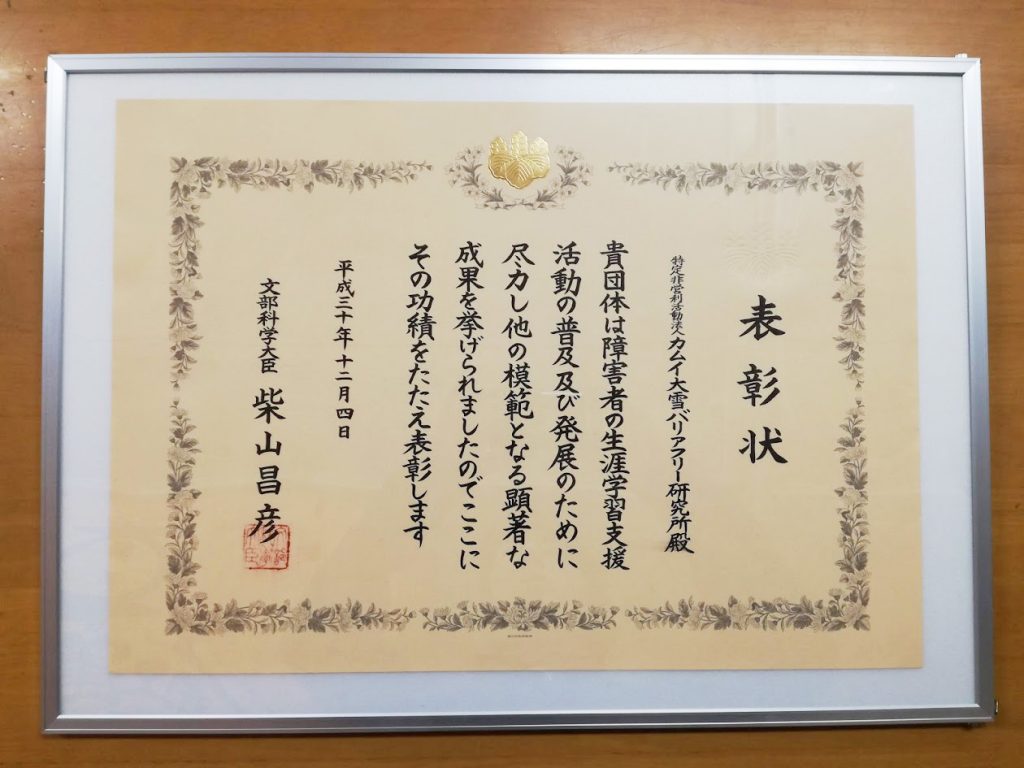 表彰状
特定非営利活動法人カムイ大雪バリアフリー研究所殿
貴団体は障害者の生涯学習支援
活動の普及及び発展のために
尽力し他の模範となる顕著な
成果を挙げられましたのでここに
その功績をたたえ表彰します
平成三十年十二月四日
文部科学大臣 柴山昌彦